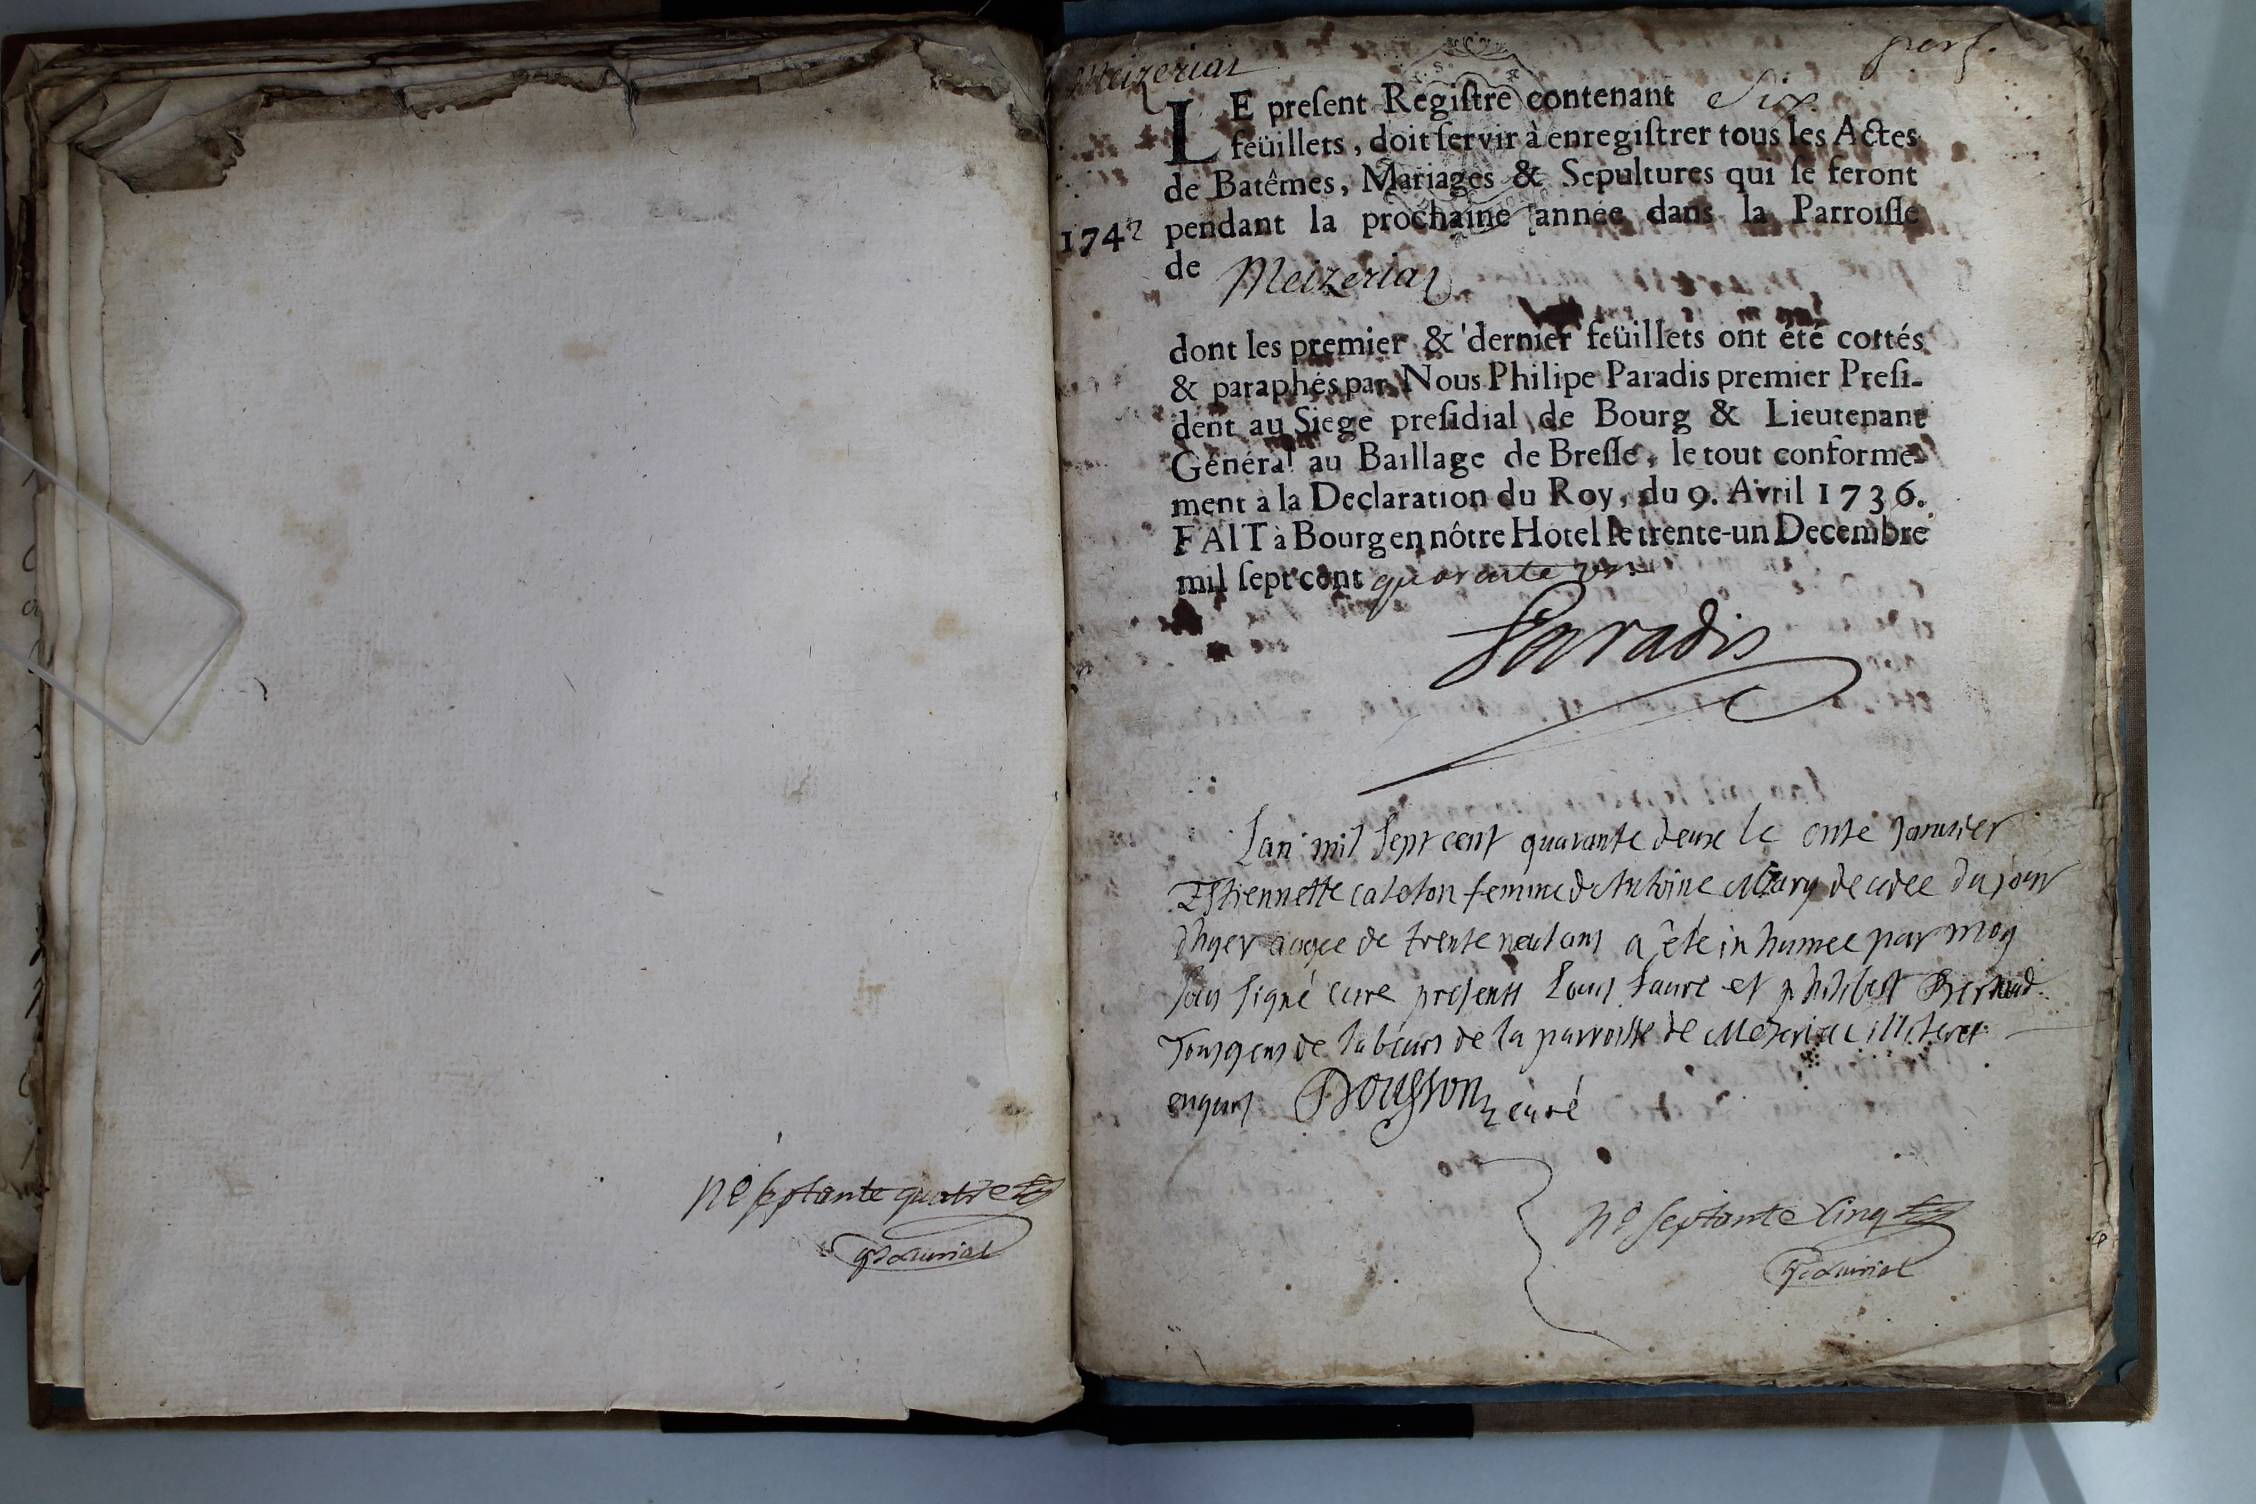 nº septante quatre
Meizeriat
LE preſent Regiſtre contenant Six
feüillets, doit ſervir à enregiſtrer tous les Actes
de Batêmes, Mariages & Sepultures qui ſe feront
1742 pendant la prochaine année dans la Parroiſſe
de Meizeriat
dont les premier & dernier feüillets ont été cottés
& paraphés par Nous Philipe Paradis premier Preſi-
dent au Siege preſidial de Bourg & Lieutenant
Général au Baillage de Breſſe, le tout conforme-
ment à la Declaration du Roy, du 9. Avril 1736.
FAIT à Bourg en nôtre Hotel le trente-un Decembre
mil ſept cent quarante un
Paradis
Lan mil Sept cent quarante deux le onse Janvier
Estiennette cateton femme de Antoine Mary decedee du jour
dhyer aagee de trente neuf ans a été inhumee par moy
sous signé cure presents Louis faure et philibert Bernard
Tous gens de labeurs de la parroisse de Meseria illiteres
enquis Dousson curé
nº septante Cinq